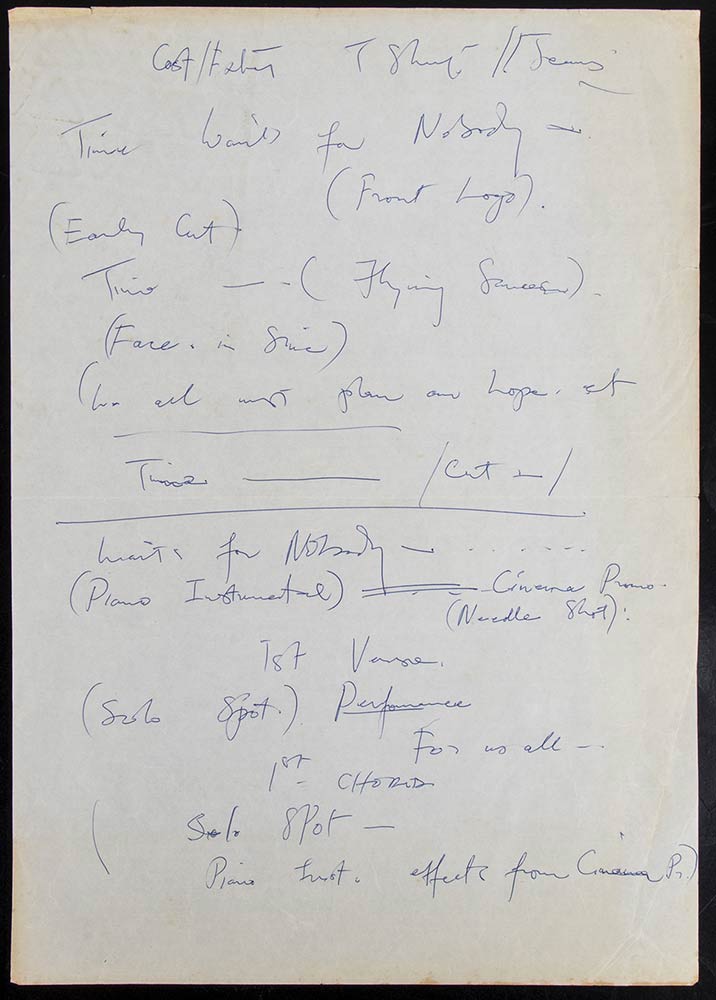 T Shirt / Jeans
Time waits for Nobody —.
(Front Logo).
(Early Cut)
Time — - (Flying Saucer).
(Face. in
(We all must plan our hope. et
Time ——— /Cut —/
waits for Nobody — . . . . . .
(Piano Instumental) ——— Cinema Promo.
(Needle Shot):
1st Verse.
(Solo Spot.) Perfomance
For us all —
1st CHORUS
(Solo SPOT —
Piano Inst. effects from Cinema Pr.)